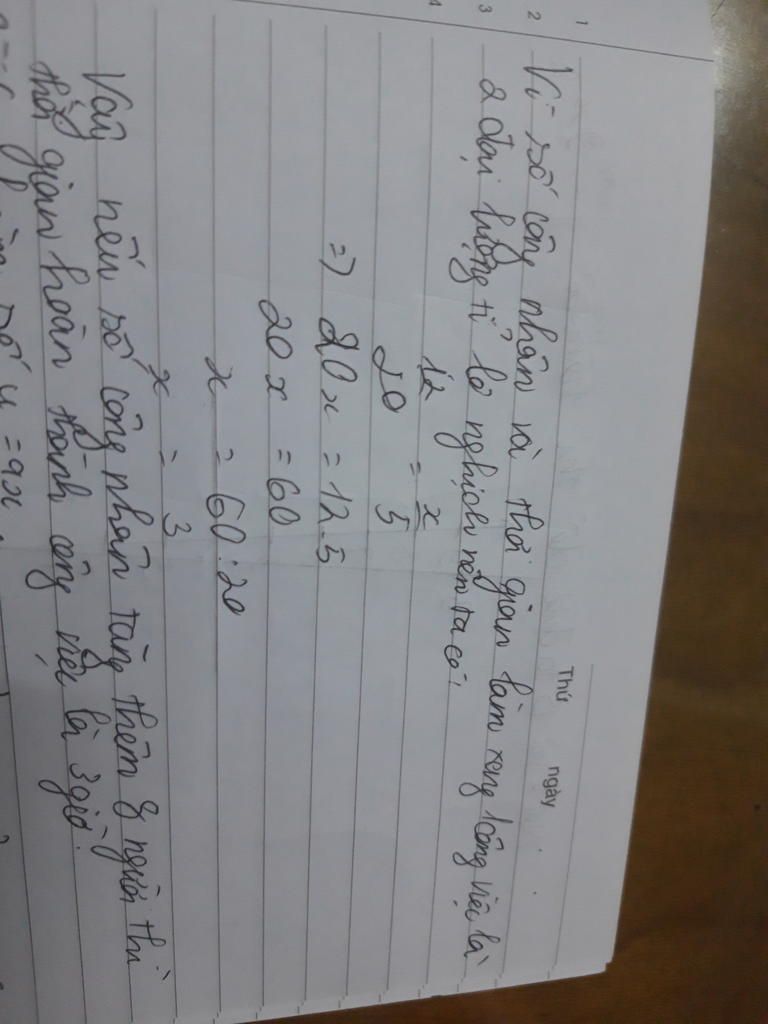 Thứ ngày
1
2
3
4
Vì số công nhân và thời gian làm xong 1 công việc là
2 đại lượng tỉ lệ nghịch nên ta có:
12
20 = x
5
=) 20x = 12.5
20x = 60
x = 60 : 20
x = 3
Vậy nếu số công nhân tăng thêm 8 người thì
thời gian hoàn thành công việc là 3 giờ.
số y = 9x.